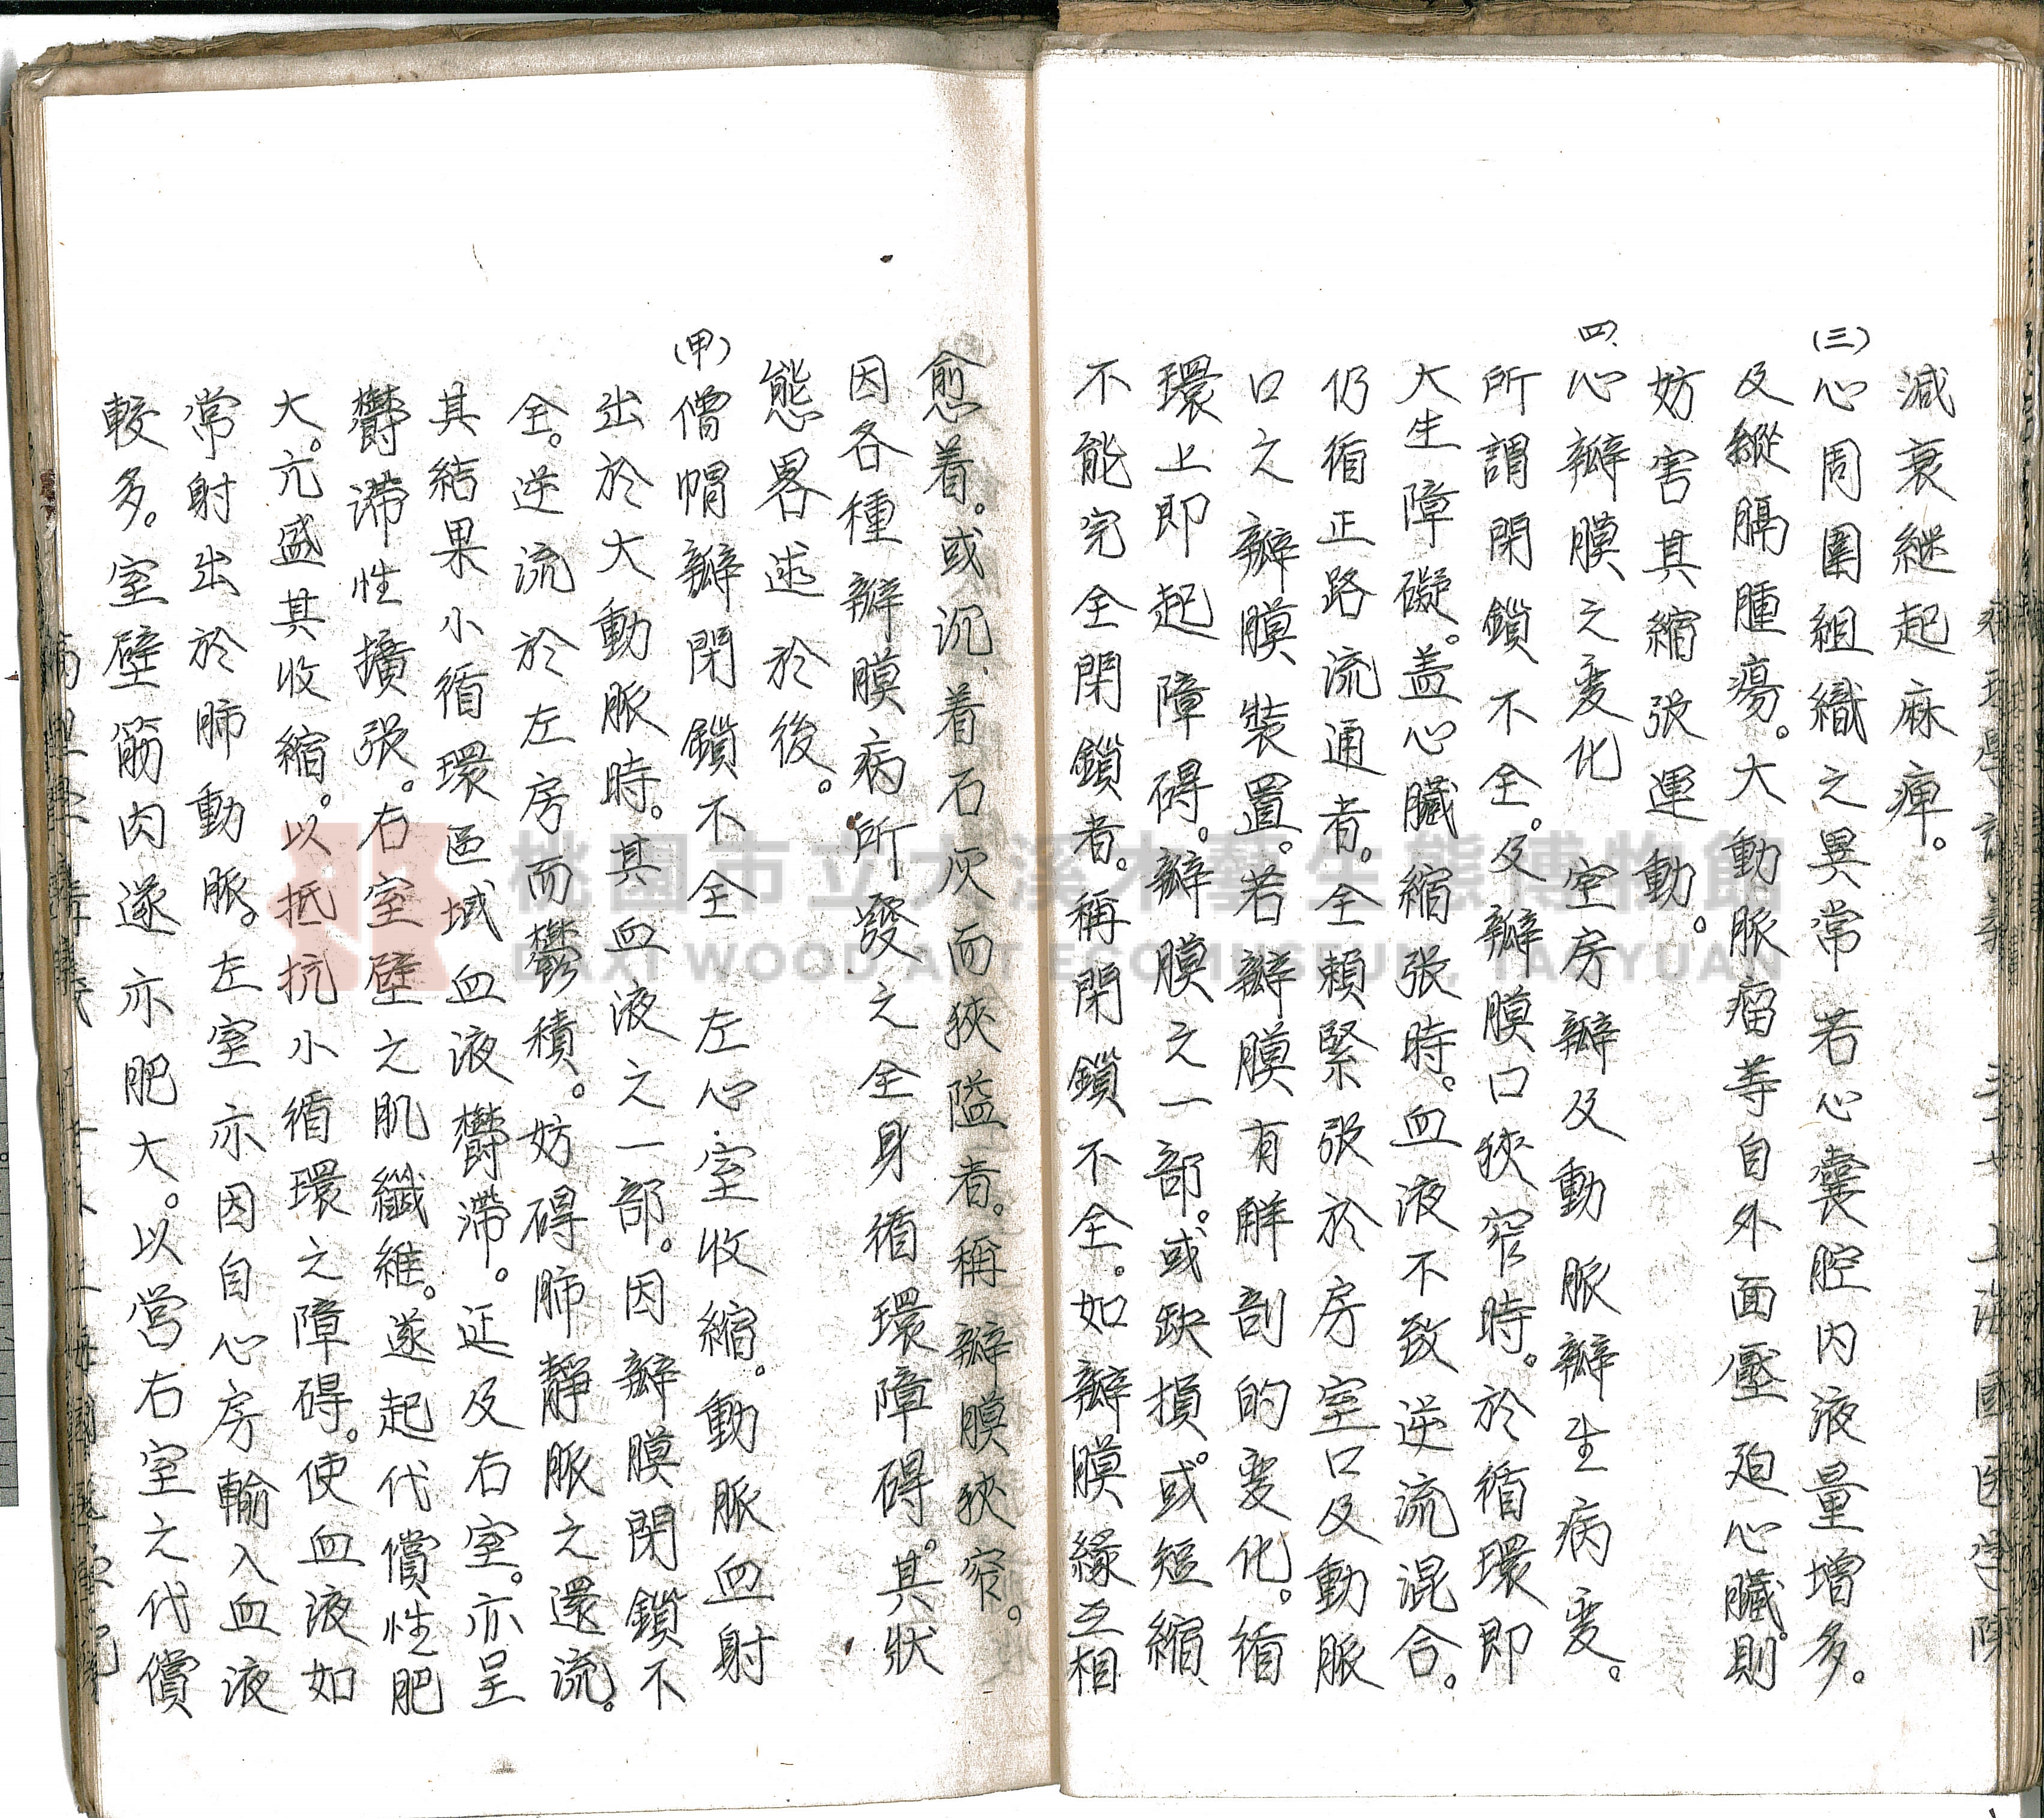 減衰継起麻痺。
(三)心周圍組織之異常 若心囊腔内液量增多。
及縱膈腫瘍。大動脈瘤等自外面壓迫心臟。則
妨害其縮張運動。
四、心瓣膜之変化 室房瓣及動脈瓣生病変。
所謂閉鎖不全。及瓣膜口狹窄時。於循環即
大生障礙。盖心臟縮張時。血液不致逆流混合。
仍循正路流通者。全賴緊張於房室口及動脈
口之瓣膜裝置。若瓣膜有解剖的変化。循
環上即起障碍。瓣膜之一部。或缺損。或短縮
不能完全閉鎖者。稱閉鎖不全。如瓣膜緣互相
愈着。或沉着石灰而狹隘者。稱瓣膜狹窄。
因各種瓣膜病所發之全身循環障碍。其狀
態畧述於後。
(甲)僧帽瓣閉鎖不全 左心室收縮。動脈血射
出於大動脈時。其血液之一部。因瓣膜閉鎖不
全。逆流於左房而鬱積。妨碍肺靜脈之還流。
其結果小循環區域血液欝滞。延及右室。亦呈
欝滞性擴張。右室壁之肌纖維。遂起代償性肥
大。亢盛其收縮。以抵抗小循環之障碍。使血液如
常射出於肺動脈。左室亦因自心房輸入血液
較多。室壁筋肉遂亦肥大。以营右室之代償
桃園市立大溪木藝生態博物館
DAXI WOOD ART ECOMUSEUM, TAOYUAN